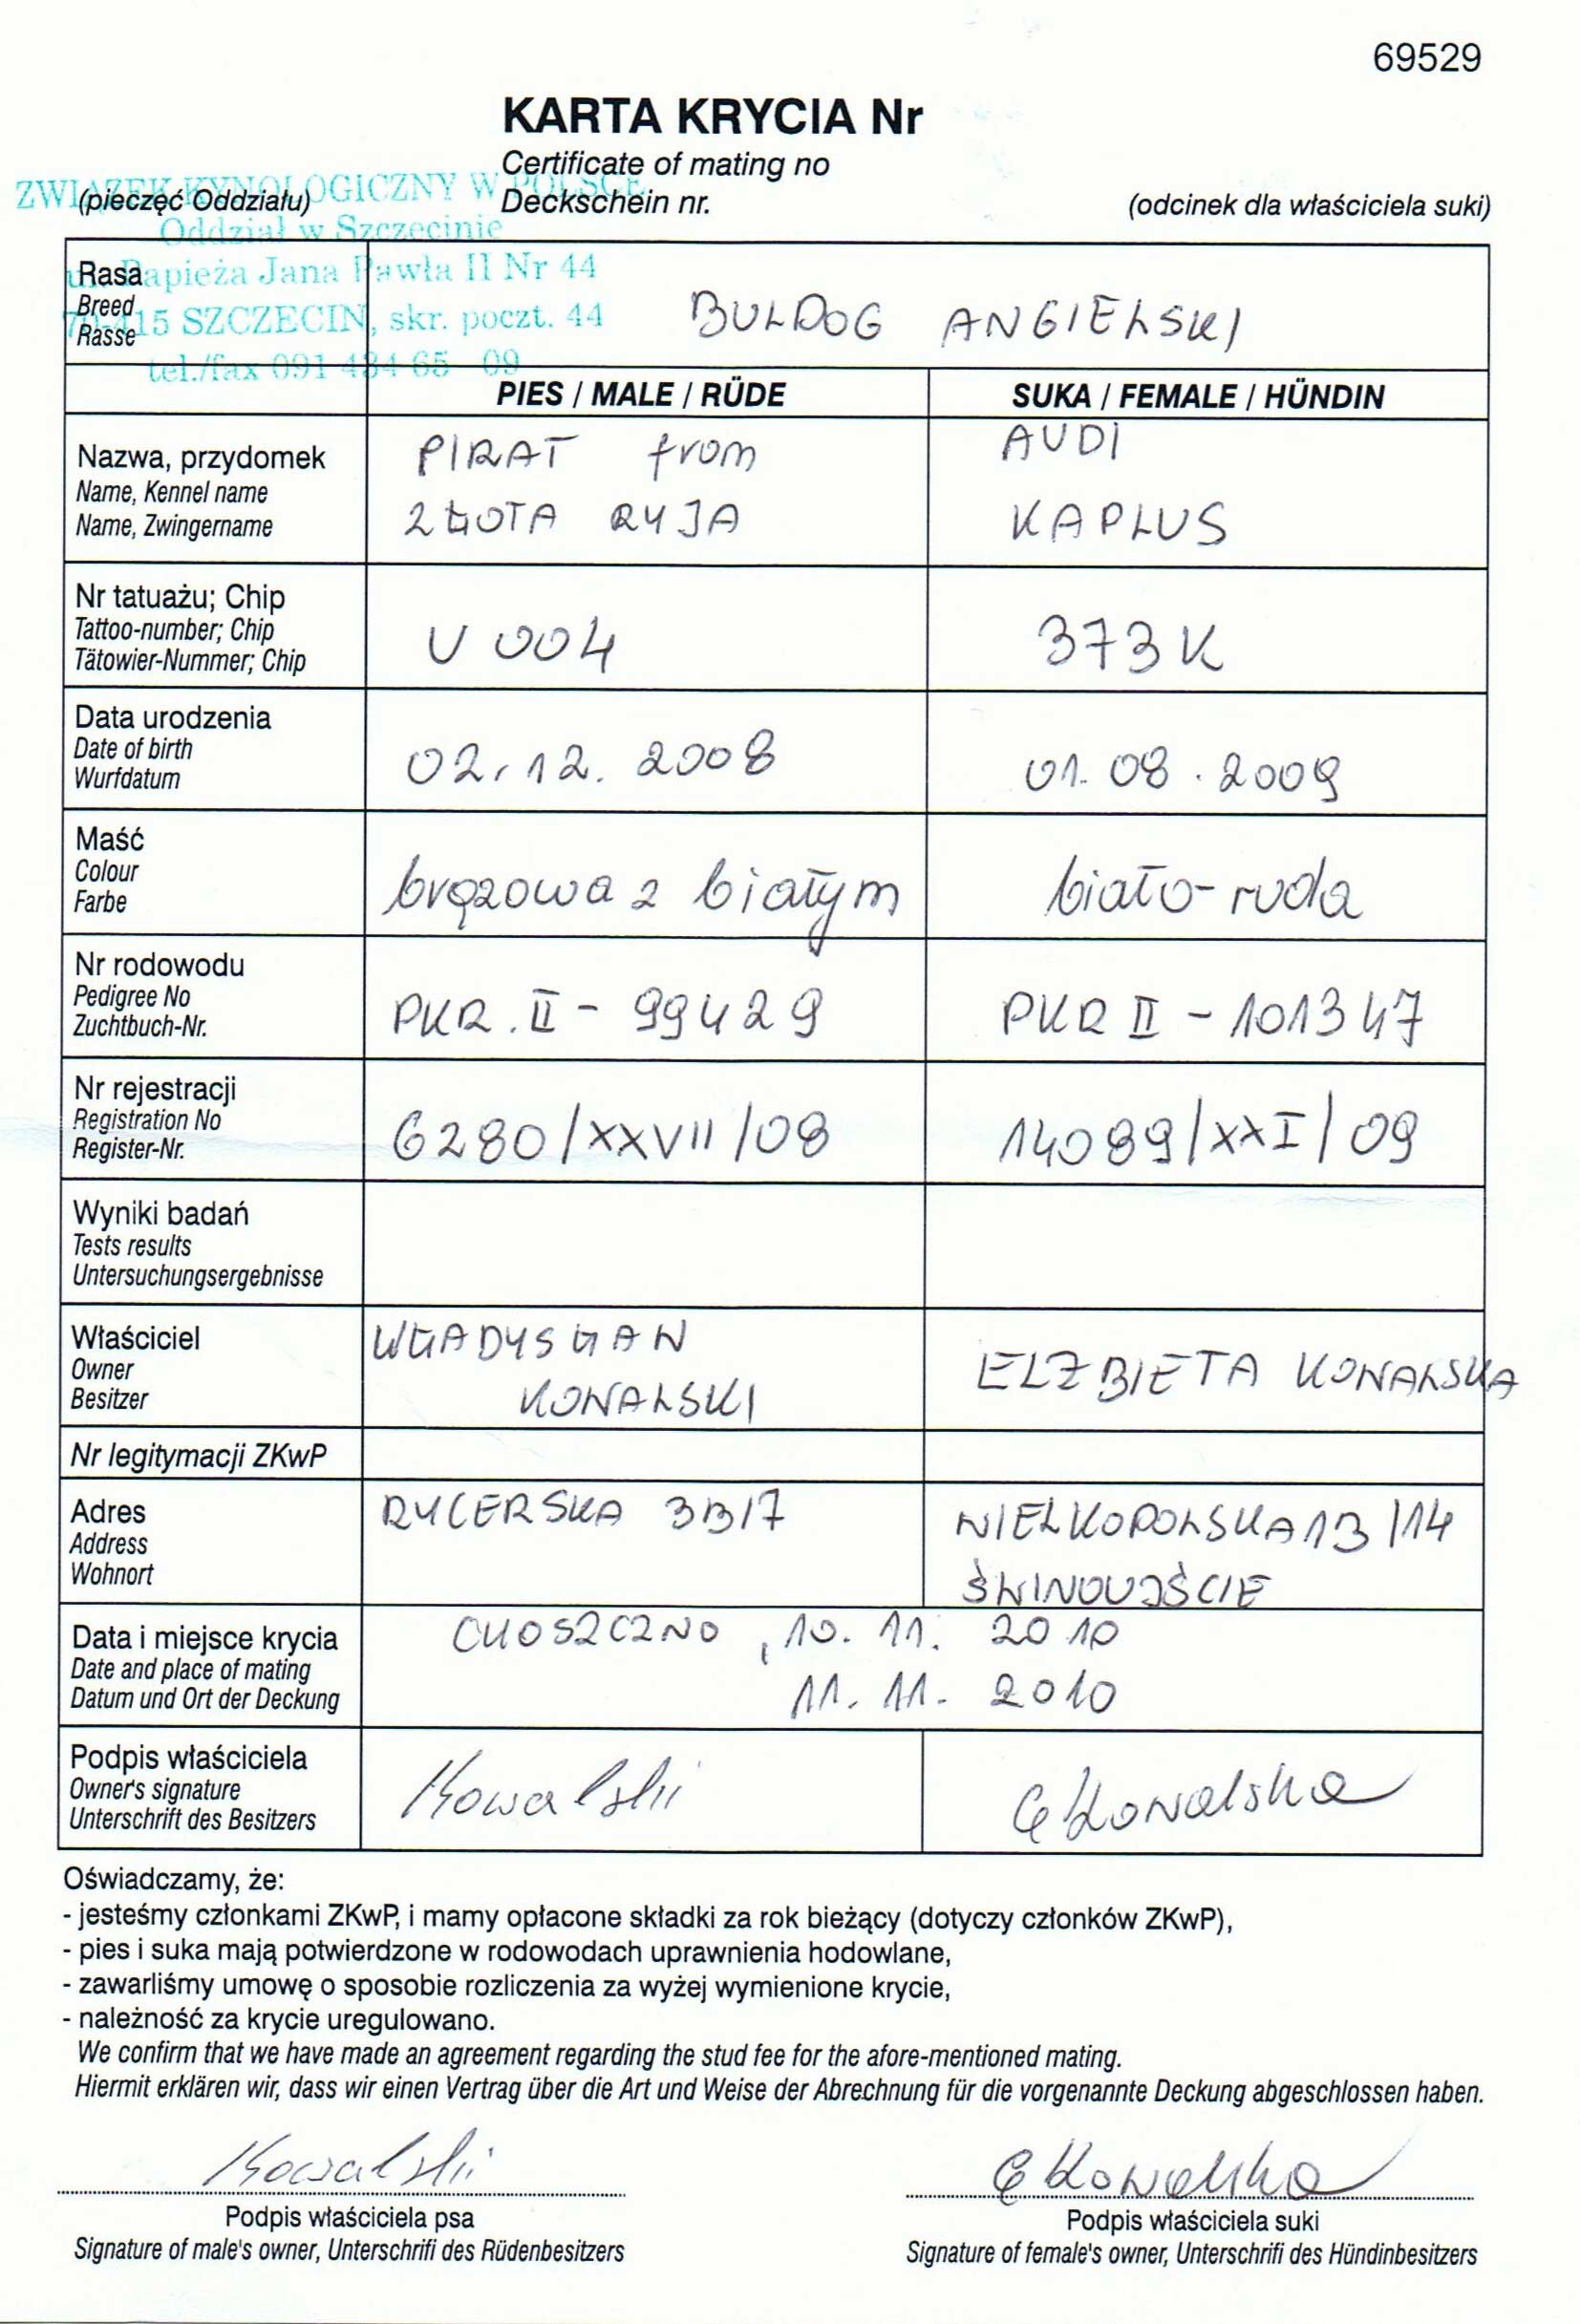 69529
KARTA KRYCIA Nr
Certificate of mating no
Deckschein nr.
ZWIĄZEK KYNOLOGICZNY W POLSCE
(pieczęć Oddziału)
(odcinek dla właściciela suki)
Oddział w Szczecinie
ul. Papieża Jana Pawła II Nr 44
70-415 SZCZECIN, skr. poczt. 44
tel./fax 091 434 65 09
Rasa
Breed
Rasse
BULDOG ANGIELSKI
PIES / MALE / RÜDE
SUKA / FEMALE / HÜNDIN
Nazwa, przydomek
Name, Kennel name
Name, Zwingername
PIRAT from
ZŁOTA RYJA
AUDI
KAPLUS
Nr tatuażu; Chip
Tattoo-number; Chip
Tätowier-Nummer; Chip
U 004
373K
Data urodzenia
Date of birth
Wurfdatum
02.12.2008
01.08.2009
Maść
Colour
Farbe
brązowa z białym
biało-ruda
Nr rodowodu
Pedigree No
Zuchtbuch-Nr.
PKR.II-99429
PKR II-101347
Nr rejestracji
Registration No
Register-Nr.
6280/XXVII/08
14089/XXI/09
Wyniki badań
Tests results
Untersuchungsergebnisse
Właściciel
Owner
Besitzer
WŁADYSŁAW
KOWALSKI
ELŻBIETA KOWALSKA
Nr legitymacji ZKwP
Adres
Address
Wohnort
RYCERSKA 3B/7
WIELKOPOLSKA 13/14
ŚWINOUJŚCIE
Data i miejsce krycia
Date and place of mating
Datum und Ort der Deckung
CHOSZCZNO, 10.11.2010
11.11.2010
Podpis właściciela
Owner's signature
Unterschrift des Besitzers
Kowalski
E Kowalska
Oświadczamy, że:
- jesteśmy członkami ZKwP, i mamy opłacone składki za rok bieżący (dotyczy członków ZKwP),
- pies i suka mają potwierdzone w rodowodach uprawnienia hodowlane,
- zawarliśmy umowę o sposobie rozliczenia za wyżej wymienione krycie,
- należność za krycie uregulowano.
We confirm that we have made an agreement regarding the stud fee for the afore-mentioned mating.
Hiermit erklären wir, dass wir einen Vertrag über die Art und Weise der Abrechnung für die vorgenannte Deckung abgeschlossen haben.
Kowalski
E Kowalska
Podpis właściciela psa
Signature of male's owner, Unterschrifi des Rüdenbesitzers
Podpis właściciela suki
Signature of female's owner, Unterschrifi des Hündinbesitzers